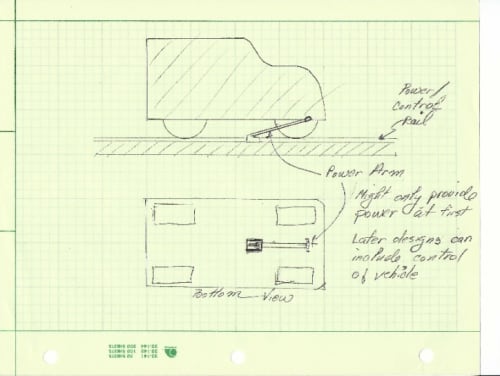 Power/
Control
Rail
Power Arm
Might only provide
power at first
Later designs can
include control
of vehicle
Bottom View